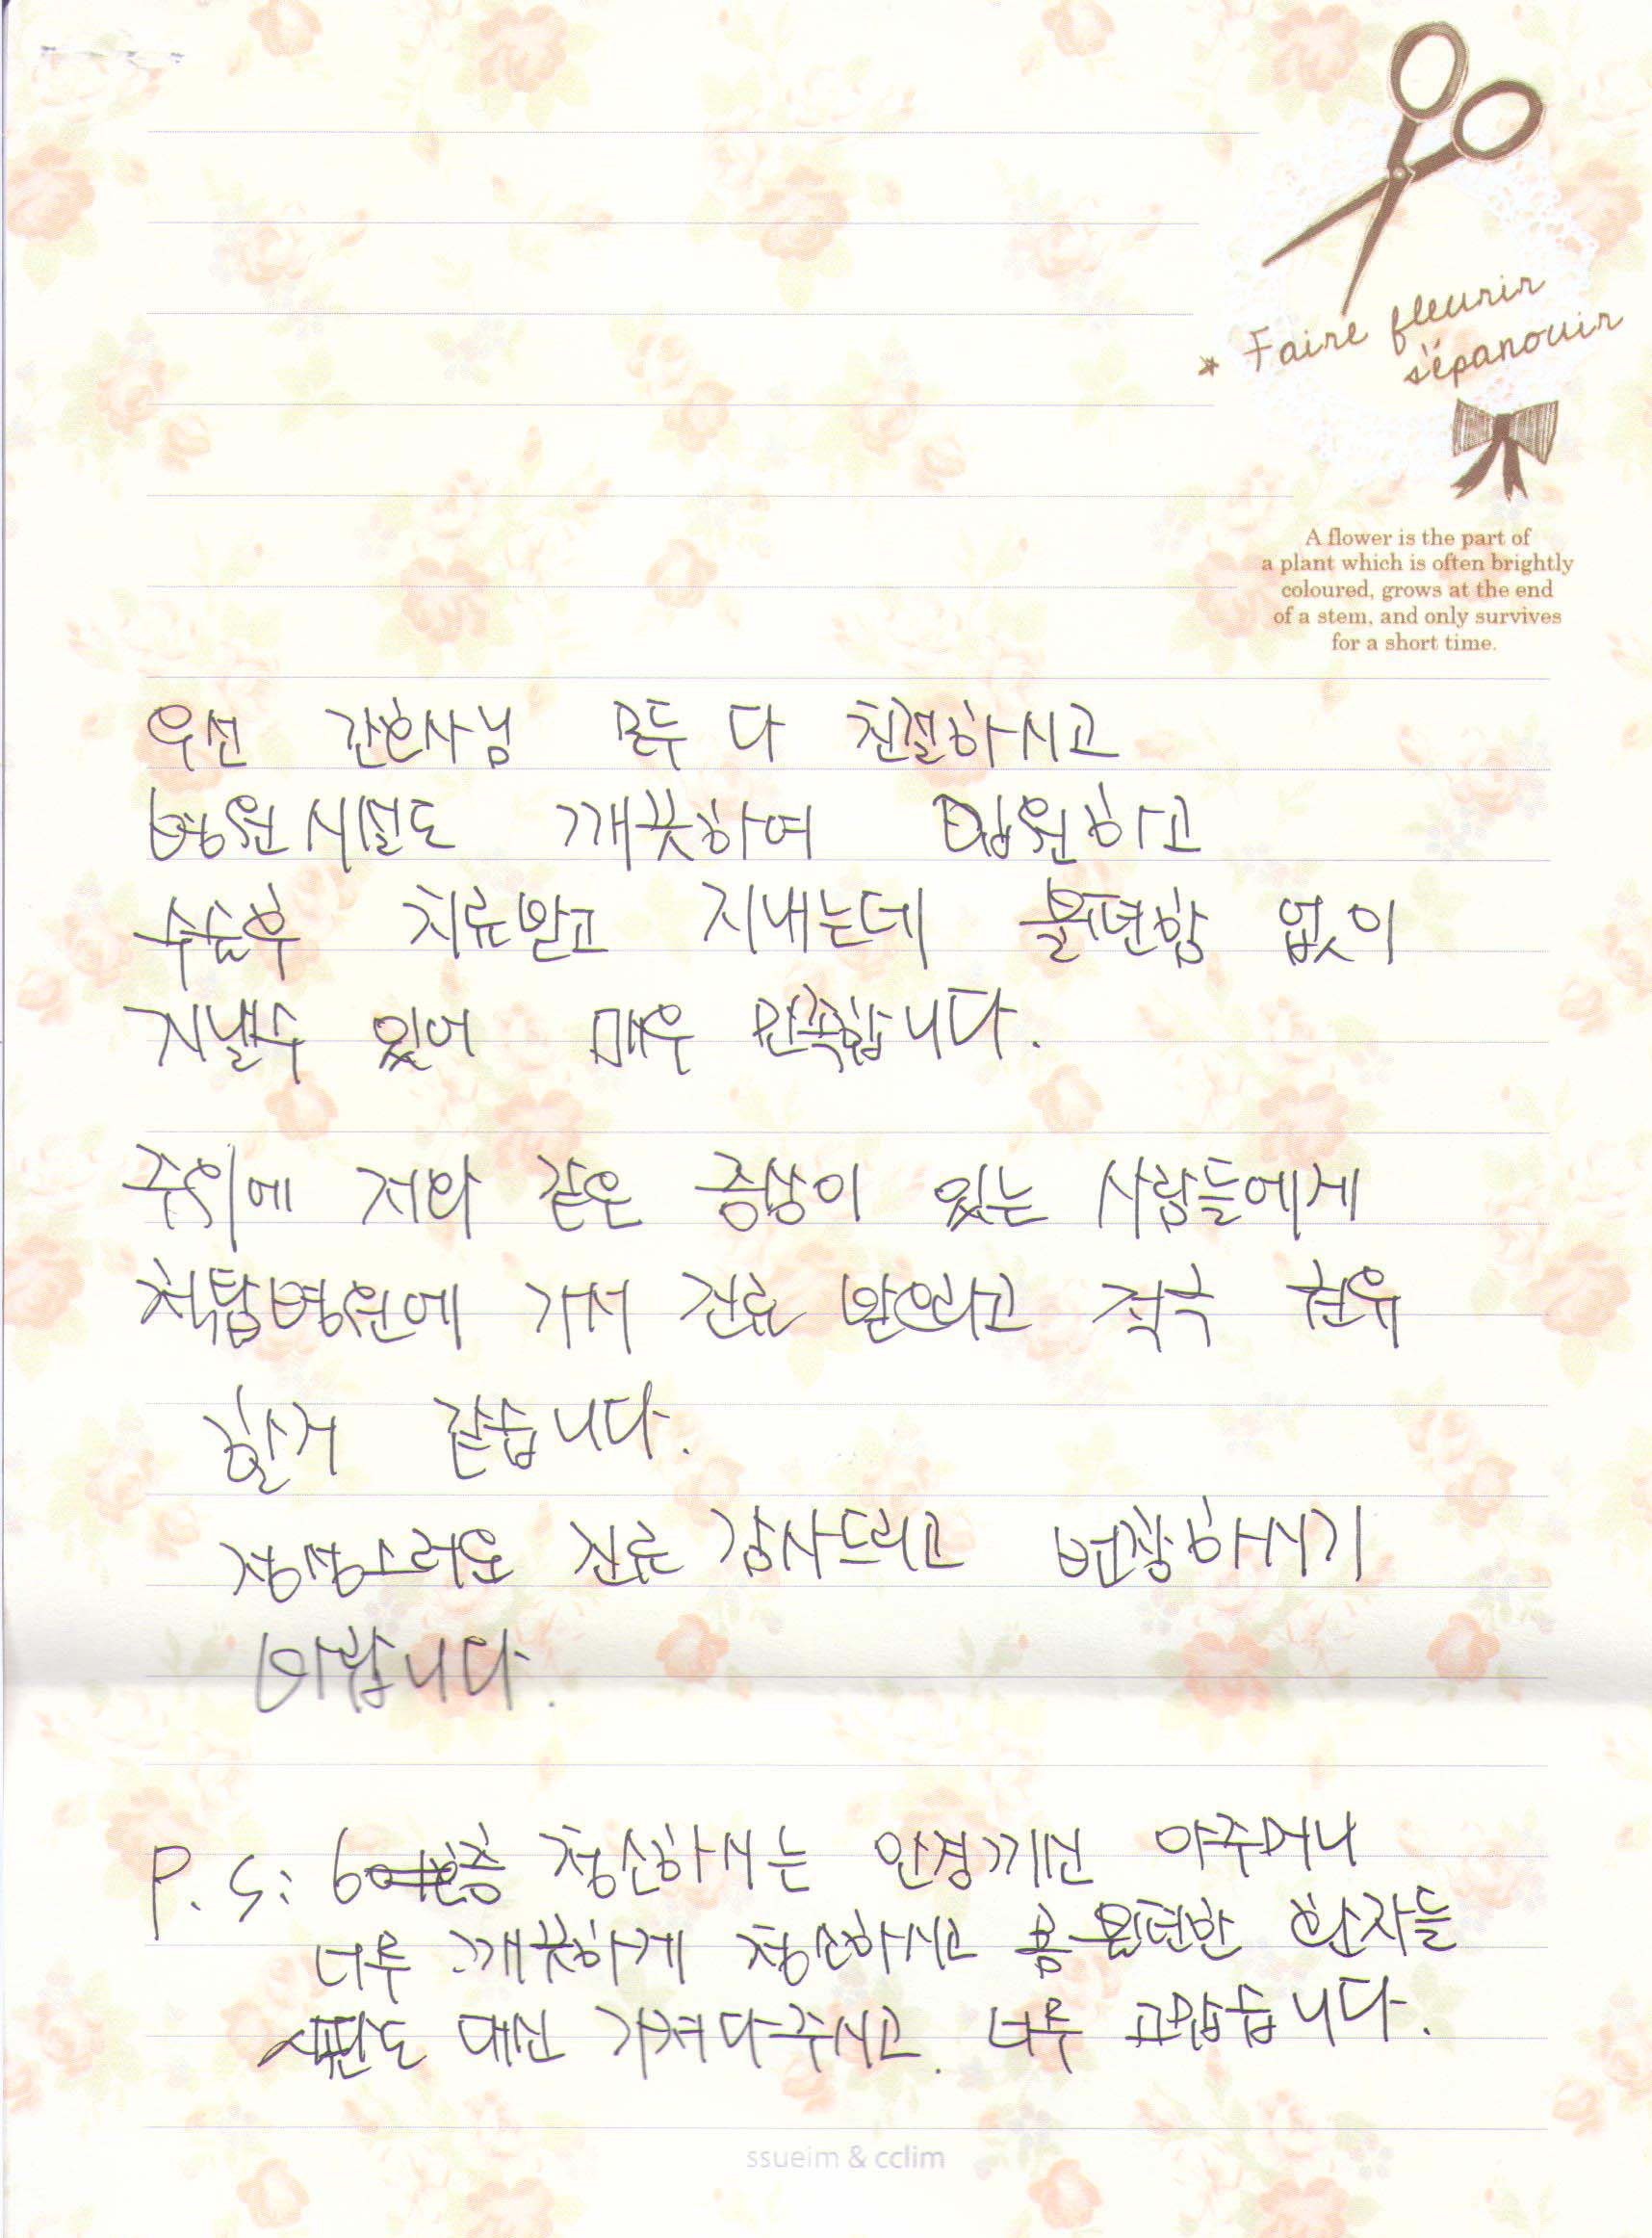 * Faire fleurir
s'épanouir
A flower is the part of
a plant which is often brightly
coloured, grows at the end
of a stem, and only survives
for a short time.
우선 간호사님 모두 다 친절하시고
병원시설도 깨끗하여 입원하고
수술후 치료받고 지내는데 불편함 없이
지낼수 있어 매우 만족합니다.
주위에 저와 같은 증상이 있는 사람들에게
척탑병원에 가서 진료 받으라고 적극 권유
할거 같습니다.
정성스러운 진료 감사드리고 번창하시기
바랍니다.
P.S: 6층 청소하시는 안경끼신 아주머니
너무 깨끗하게 청소하시고 몸 불편한 환자들
식판도 대신 가져다주시고. 너무 고맙습니다.
ssueim & cclim